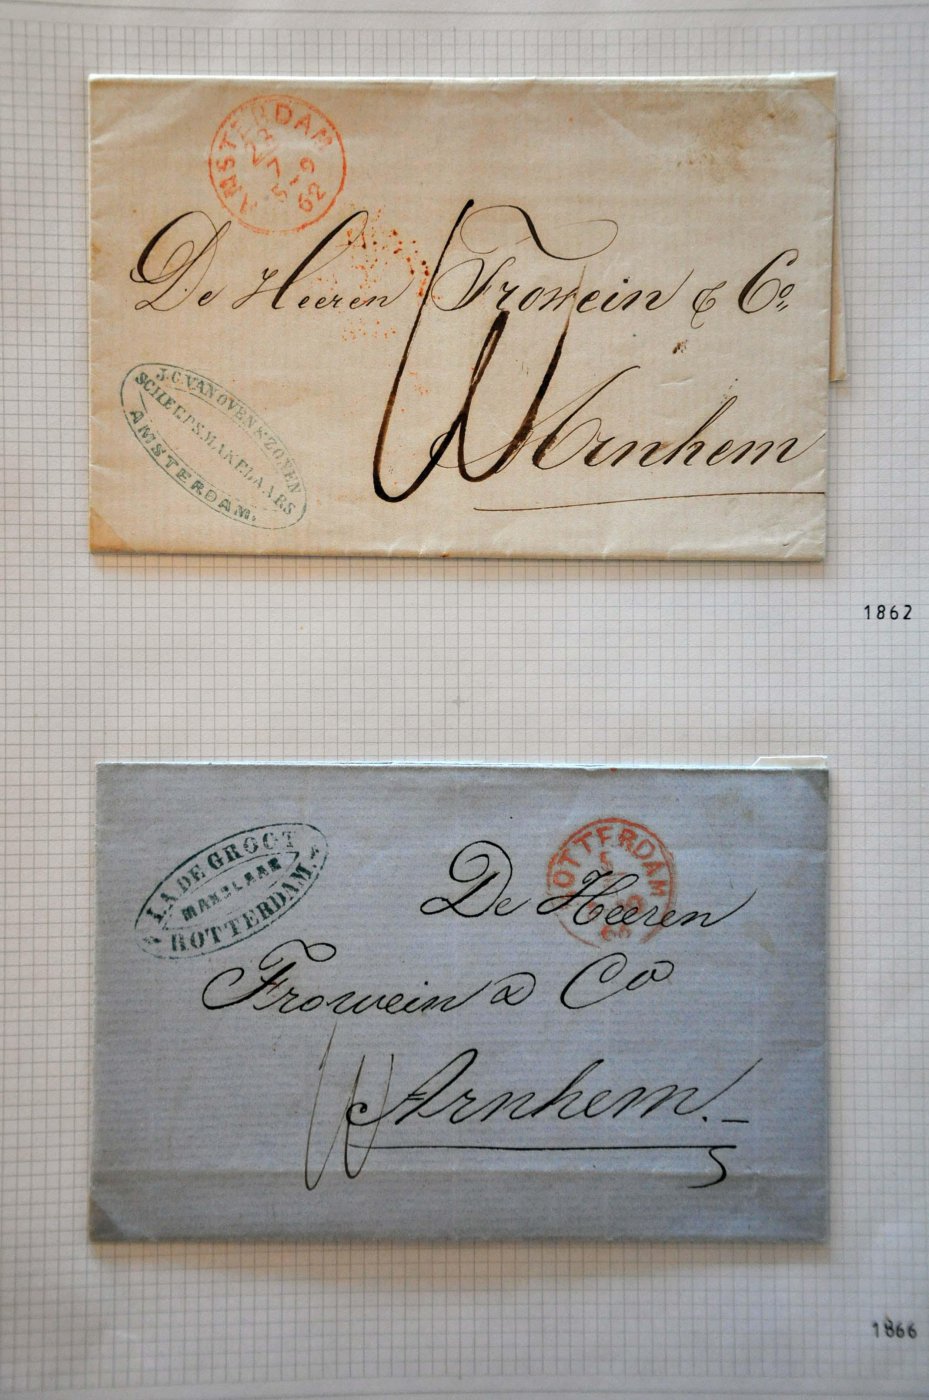 AMSTERDAM
23
7
5-9
62
De Heeren Frowein & Co.,
Arnhem
J.C. VAN OVEN & ZONEN
SCHEEPSMAKELAARS
AMSTERDAM.
1862
I.A. DE GROOT
MAKELAAR
ROTTERDAM.
ROTTERDAM
5
66
De Heeren
Frowein & Co
Arnhem.
1866